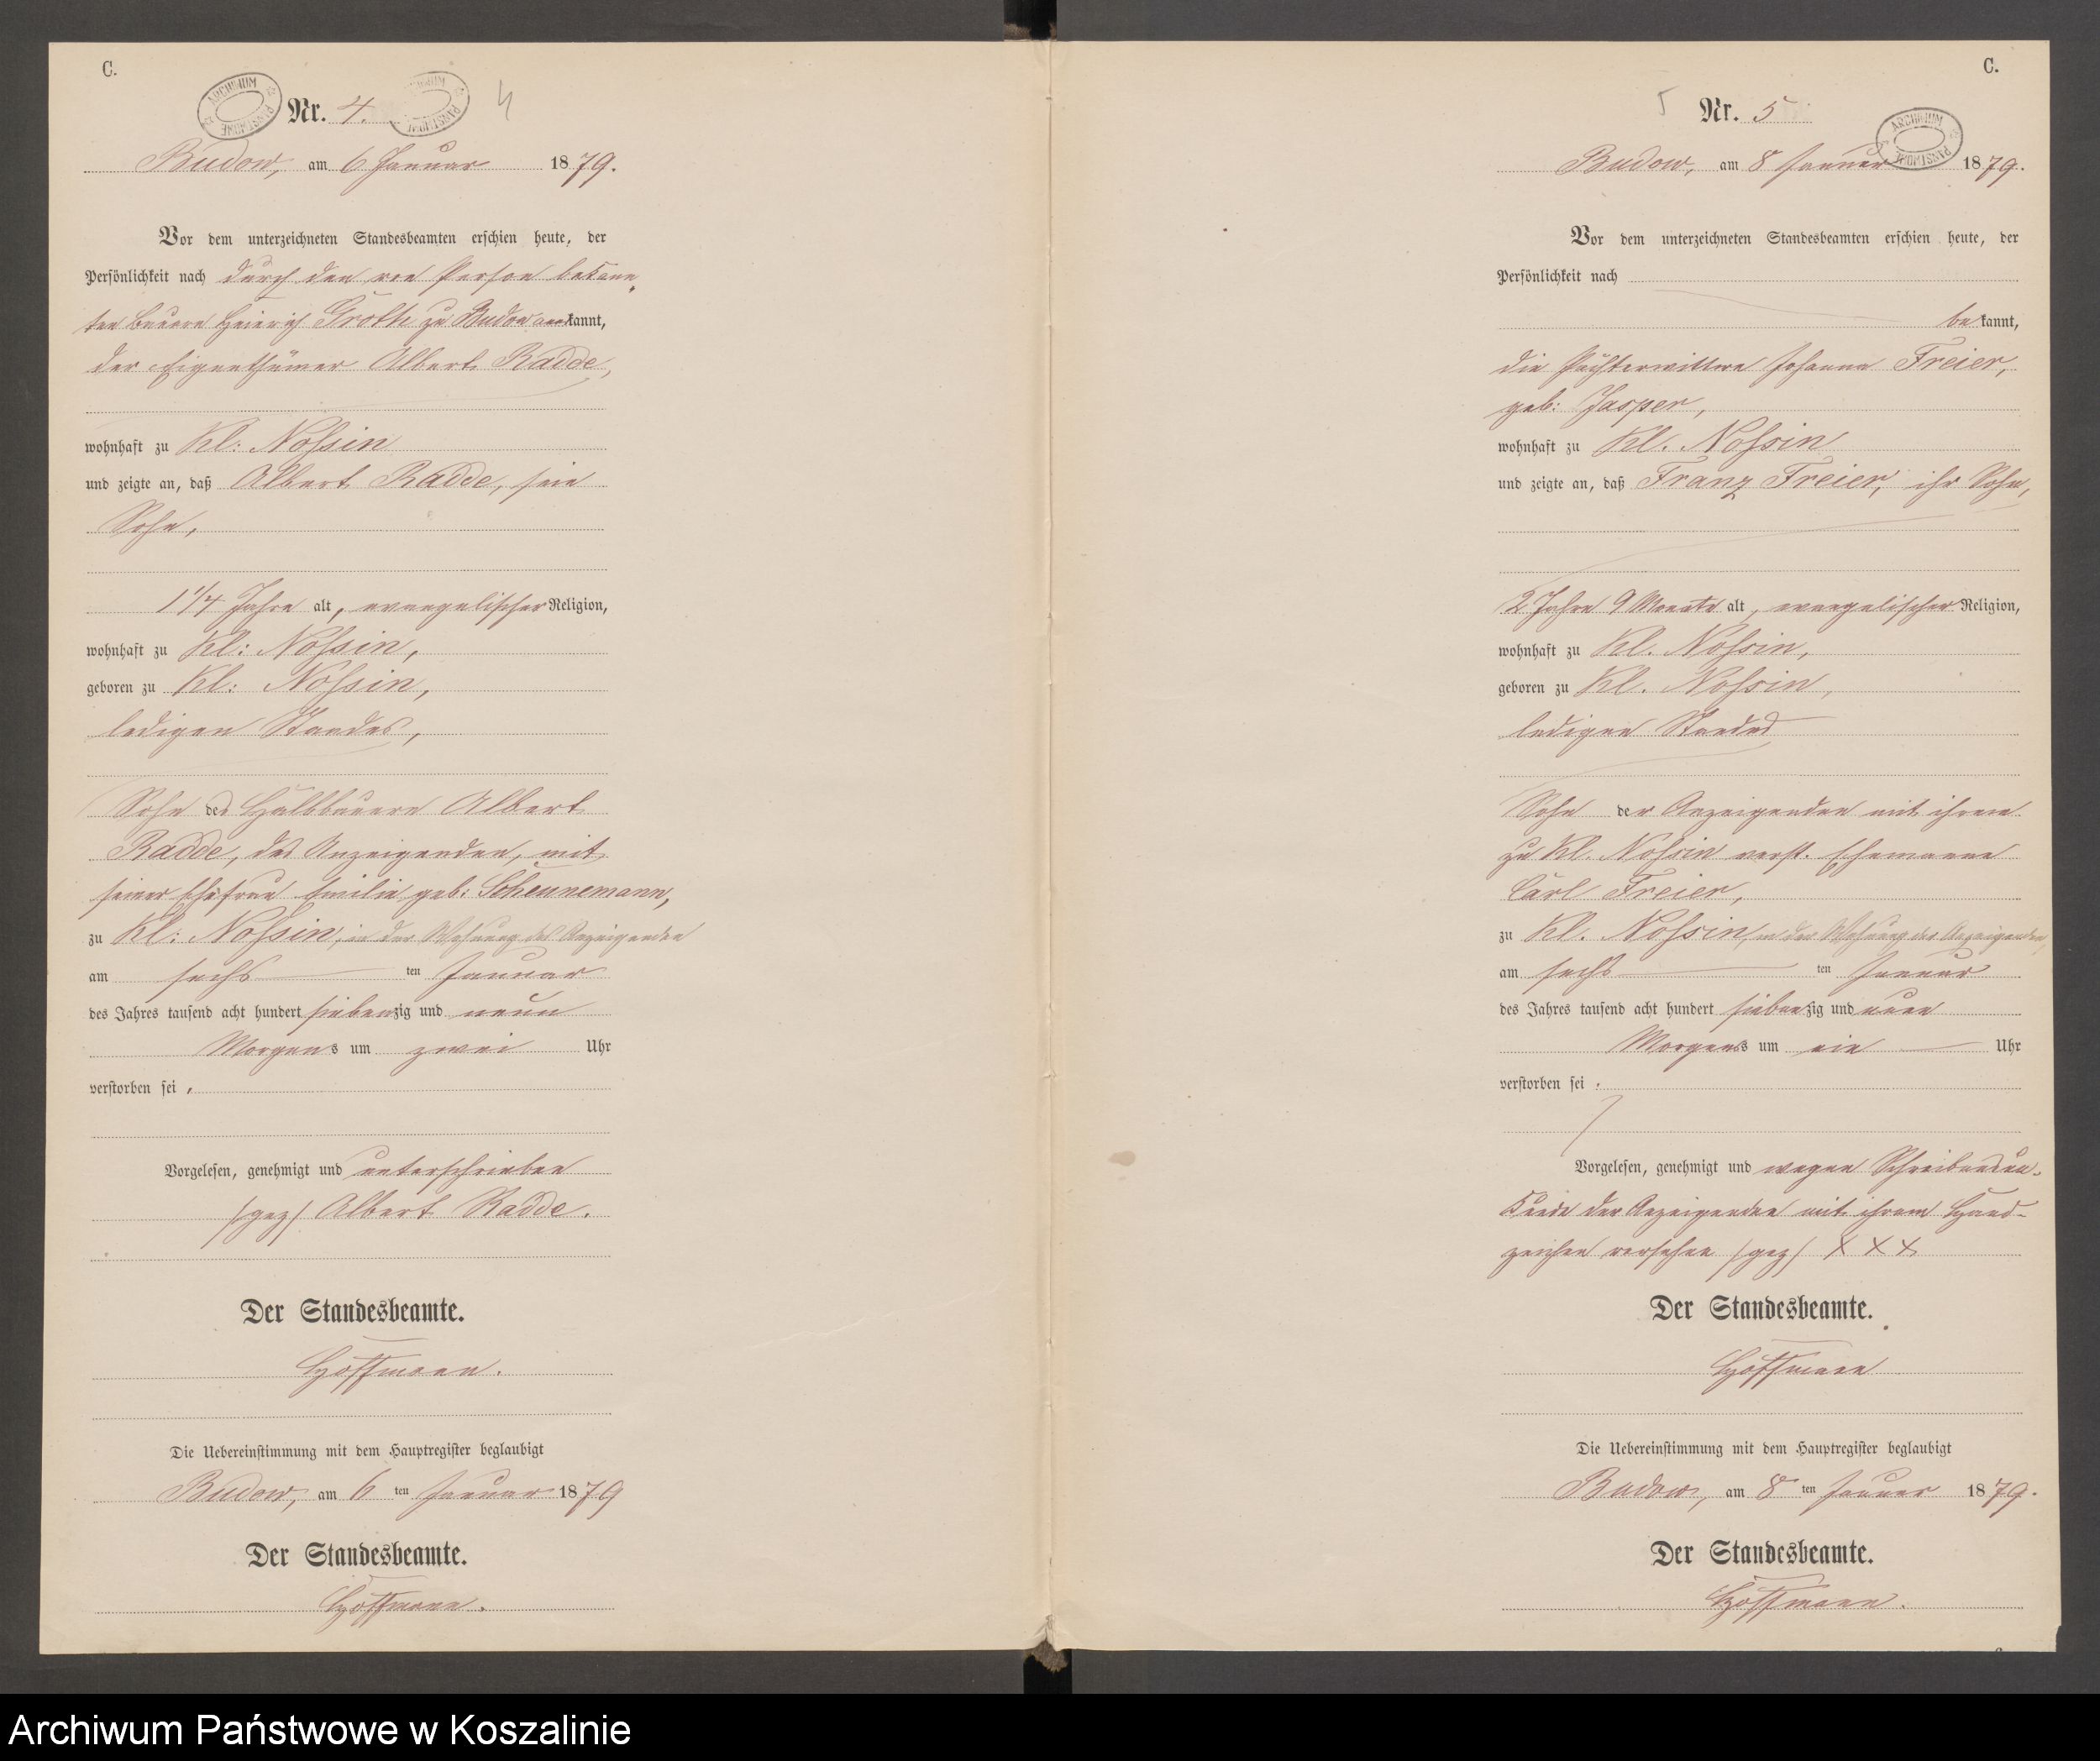 C.
ARCHIWUM PAŃSTWOWE
Nr. 4.
4
Budow, am 6 Januar 1879.
Vor dem unterzeichneten Standesbeamten erschien heute, der
Persönlichkeit nach durch den von Person bekann-
ten Bauern Heinrich Groth zu Budow anerkannt,
der Eigenthümer Albert Radde,
wohnhaft zu Kl: Nossin
und zeigte an, daß Albert Radde, sein
Sohn,
1 1/4 Jahre alt, evangelischer Religion,
wohnhaft zu Kl: Nossin,
geboren zu Kl: Nossin,
ledigen Standes,
Sohn des Halbbauern Albert
Radde, des Anzeigenden, mit
seiner Ehefrau Emilie geb: Scheunemann,
zu Kl: Nossin, in der Wohnung des Anzeigenden
am sechs ten Januar
des Jahres tausend acht hundert siebenzig und neun
Morgens um zwei Uhr
verstorben sei.
Vorgelesen, genehmigt und unterschrieben
(gez) Albert Radde.
Der Standesbeamte.
Hoffmann.
Die Uebereinstimmung mit dem Hauptregister beglaubigt
Budow, am 6 ten Januar 1879
Der Standesbeamte.
Hoffmann.
C.
5 Nr. 5
ARCHIWUM PAŃSTWOWE
Budow, am 8 Januar 1879.
Vor dem unterzeichneten Standesbeamten erschien heute, der
Persönlichkeit nach
bekannt,
die Pächterwittwe Johanna Freier,
geb: Jasper,
wohnhaft zu Kl. Nossin
und zeigte an, daß Franz Freier, ihr Sohn,
2 Jahre 9 Monate alt, evangelischer Religion,
wohnhaft zu Kl. Nossin,
geboren zu Kl. Nossin,
ledigen Standes
Sohn der Anzeigenden mit ihrem
zu Kl. Nossin verst. Ehemanne
Carl Freier,
zu Kl. Nossin, in der Wohnung der Anzeigenden,
am sechs ten Januar
des Jahres tausend acht hundert siebenzig und neun
Morgens um ein Uhr
verstorben sei.
Vorgelesen, genehmigt und wegen Schreibensun-
kunde der Anzeigenden mit ihrem Hand-
zeichen versehen (gez) X X X
Der Standesbeamte.
Hoffmann
Die Uebereinstimmung mit dem Hauptregister beglaubigt
Budow, am 8 ten Januar 1879.
Der Standesbeamte.
Hoffmann.
Archiwum Państwowe w Koszalinie